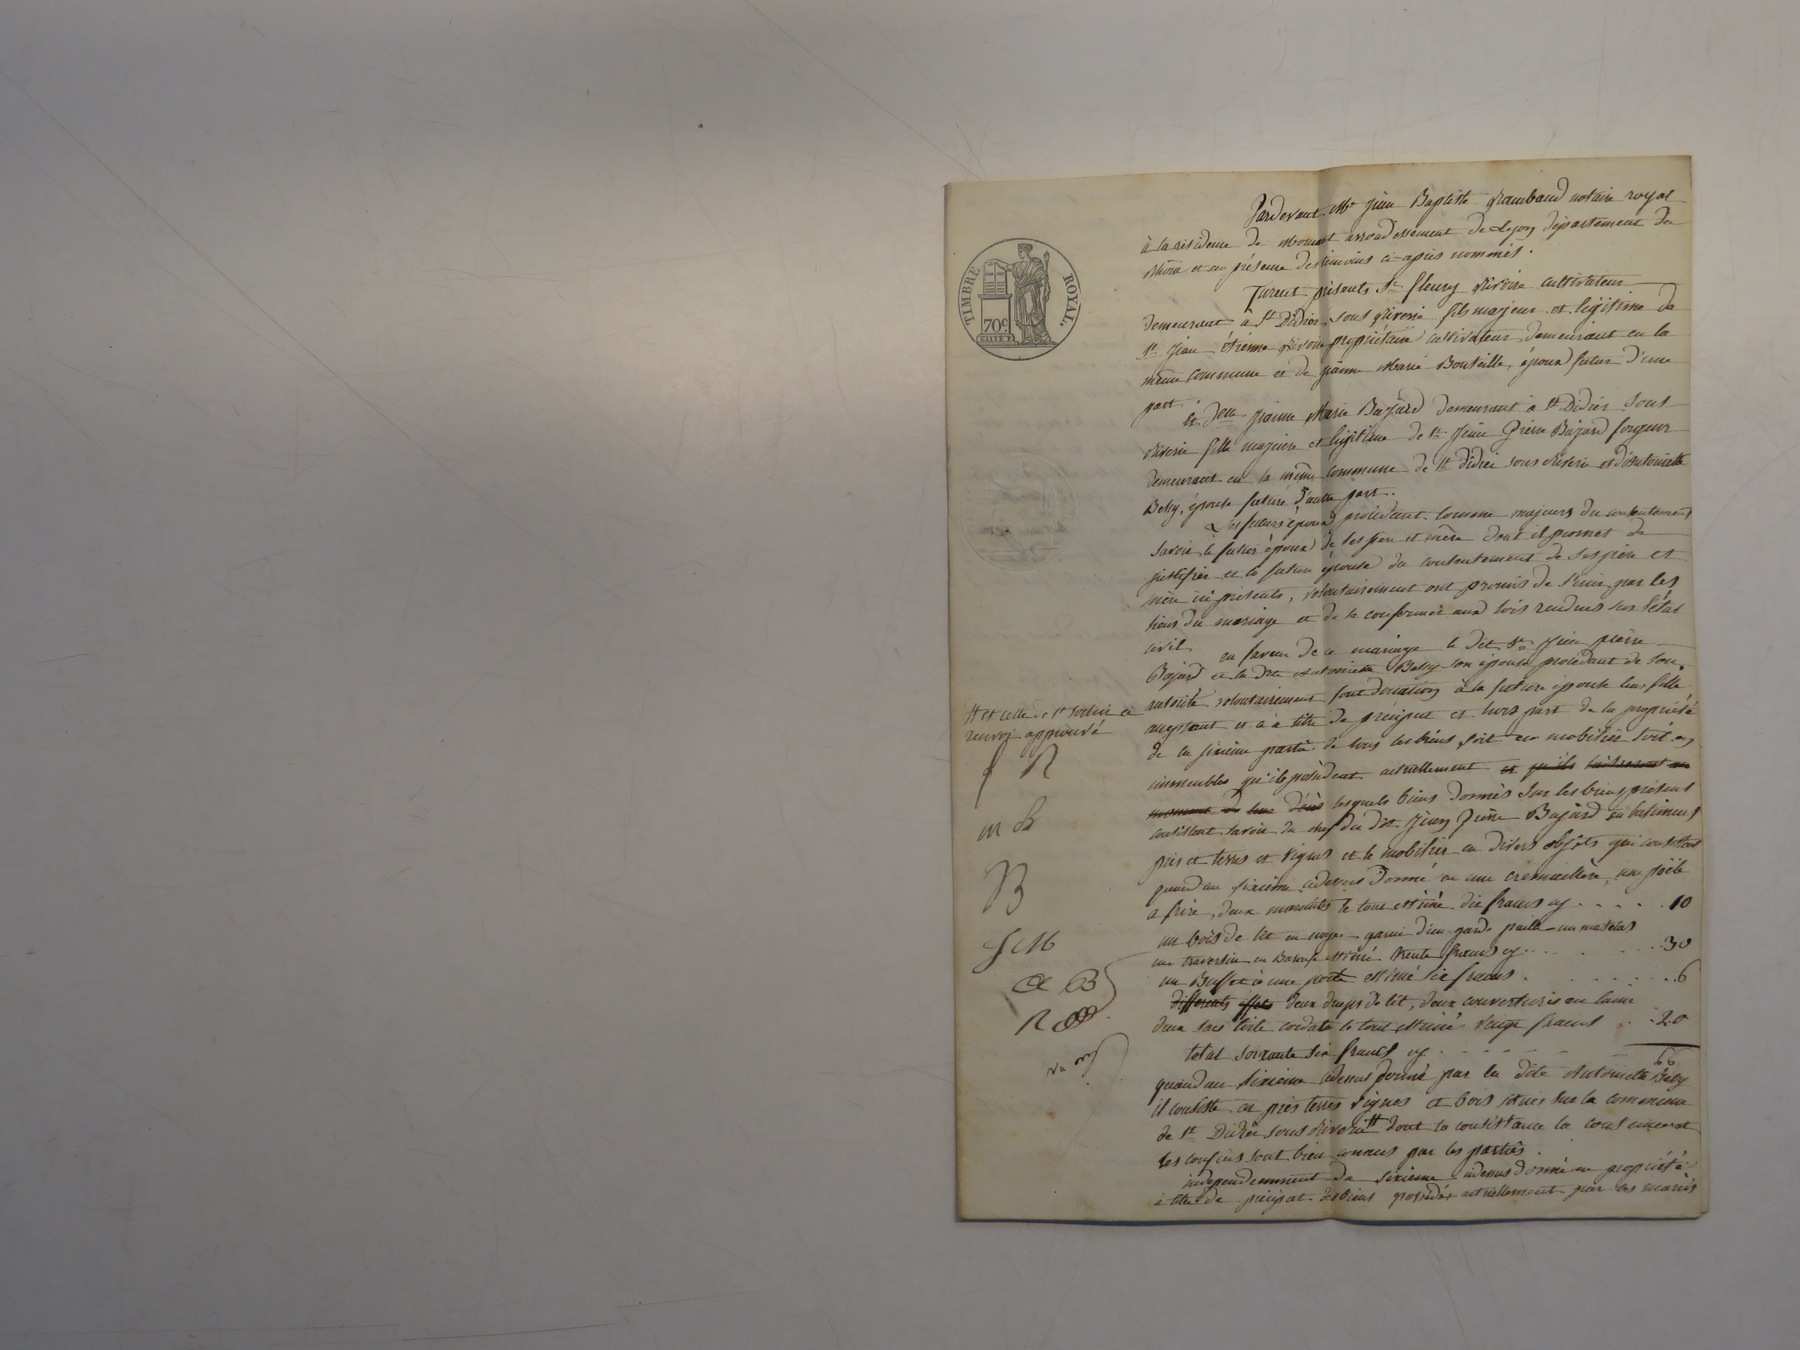 Pardevant Me Jean Baptiste Rambaud notaire royal
à la résidence de Mornant arrondissement de Lyon département du
Rhône et en présence des témoins ci-après nommés.
TIMBRE ROYAL.
70c
Furent présents Sr fleury Rivoire cultivateur
demeurant à St Didier sous Riverie fils majeur et légitime de
Sr Jean étienne Rivoire propriétaire cultivateur demeurant en la
même commune et de jeanne Marie Bouteille, époux futur d'une
part.
et Delle jeanne Marie Bajard demeurant à St Didier sous
Riverie fille majeure et légitime de Sr Jean Pierre Bajard forgeur
demeurant en la même commune de St Didier sous Riverie et d'Antoinette
Bessy, épouse future d'autre part.
Les futurs époux procédant comme majeurs du consentement
savoir le futur époux de ses père et mère dont il promet de
justifier et la future épouse du consentement de ses père et
mère ici présents, volontairement ont promis de s'unir par les
liens du mariage et de se conformer aux lois rendues sur l'état
civil.
en faveur de ce mariage le dit Sr Jean pierre
Bajard et la dite Antoinette Bessy son épouse procédant de son
autorité volontairement font donation à la future épouse leur fille
acceptant et à titre de préciput et hors part de la propriété
de la sixième partie de tous les biens soit en mobilier soit en
immeubles qu'ils possèdent actuellement et qu'ils laisseront au
moment de leur décès lesquels biens donnés sur les biens présents
consistent savoir du chef du dit Jean Pierre Bajard en batiments
prés et terres et vignes et le mobilier en divers objets qui consistent
quand au sixième cidessus donné en une cremaillère, une poële
à frire, deux marmites le tout estimé dix francs cy . . . . . 10
un bois de lit en noyer garni d'un garde paille un matelas
un traversin en Basin estimé trente francs cy . . . . 30
un Buffet à une porte estimé six francs . . . . . 6
differents effets deux draps de lit, deux couvertures en laine
deux sacs toile cordats le tout estimé vingt francs . . 20
total soixante six francs cy . . . . . . 66
quand au sixième cidessus donné par la dite Antoinette Bessy
il consiste en prés terres vignes et bois situés sur la commune
de St Didier sous Riverie # dont la consistance la contenance
les confins sont bien connus par les parties.
independemment du sixième cidessus donné en propriété
à titre de préciput des biens possédés actuellement par les mariés
# et celle de St Sorlin ce
renvoi approuvé
f R
m B
B
J M
a B
R